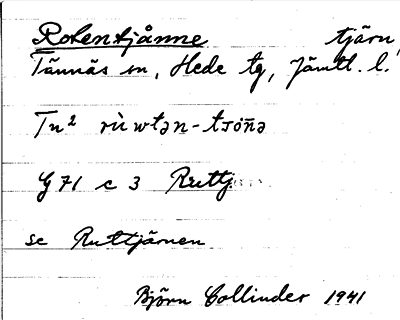 Rotentjånne tjärn,
Tännäs sn, Hede tg, Jämtl. l.
Tn² rùwtən-tjöńə
G 71 c 3 Ruttj
se Ruttjärnen
Björn Collinder 1941